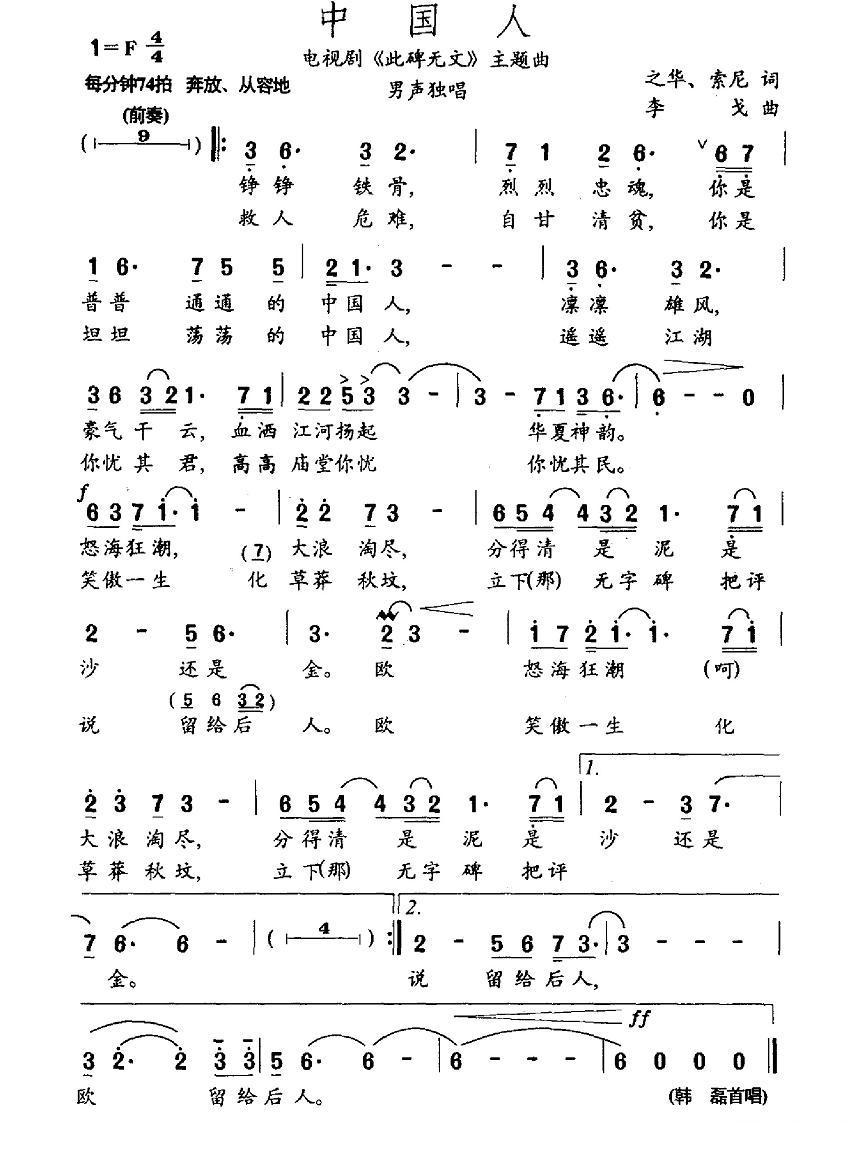 中国人
1=F 4/4
电视剧《此碑无文》主题曲
每分钟74拍 奔放、从容地
男声独唱
之华、索尼 词
李戈 曲
(前奏)
(9) ‖: 3 6· 3 2· | 7 1 2 6· ∨ 6 7 |
铮铮 铁骨, 烈烈 忠魂, 你是
救人 危难, 自甘 清贫, 你是
1 6· 7 5 5 | 2 1· 3 - - | 3 6· 3 2· |
普普 通通 的 中国 人, 凛凛 雄风,
坦坦 荡荡 的 中国 人, 遥遥 江湖
3 6 3 2 1· 7 1 | 2 2 5 3 3 - | 3 - 7 1 3 6· | 6 - - 0 |
豪气 干云, 血洒 江河扬起 华夏神韵。
你忧 其君, 高高 庙堂你忧 你忧其民。
f
6 3 7 1· 1 - | 2 2 7 3 - | 6 5 4 4 3 2 1· 7 1 |
怒海狂潮, (7) 大浪 淘尽, 分得清 是 泥 是
笑傲一生 化 草莽 秋坟, 立下(那) 无字 碑 把评
2 - 5 6· | 3· 2 3 - | 1 7 2 1· 1· 7 1 |
沙 还是 金。 欧 怒海狂潮 (呵)
(5 6 3 2)
说 留给后 人。 欧 笑傲一生 化
1.
2 3 7 3 - | 6 5 4 4 3 2 1· 7 1 | 2 - 3 7· |
大浪 淘尽, 分得清 是 泥 是 沙 还是
草莽 秋坟, 立下(那) 无字 碑 把评
2.
7 6· 6 - | (4) :‖ 2 - 5 6 7 3· | 3 - - - |
金。 说 留给后人,
ff
3 2· 2 3 3 | 5 6· 6 - | 6 - - - | 6 0 0 0 ‖
欧 留给后人。 (韩 磊首唱)